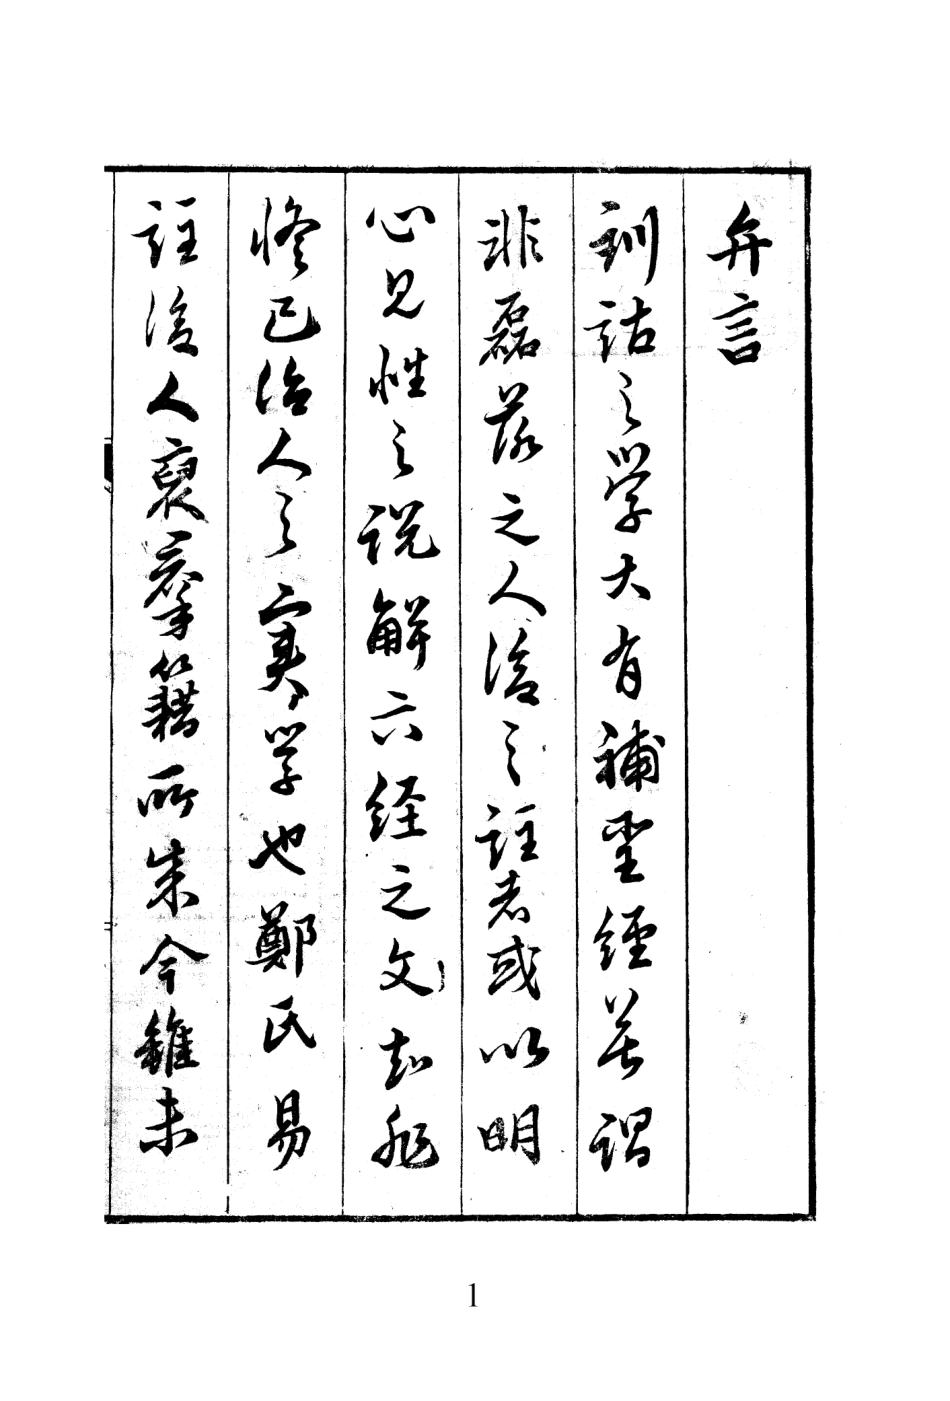 弁言
訓詁之學大有補聖經謂
非磊落之人後之註者或以明
心見性之說解六經之文知非
修己治人之實學也鄭氏易
註後人裒羣籍所今雖未
1